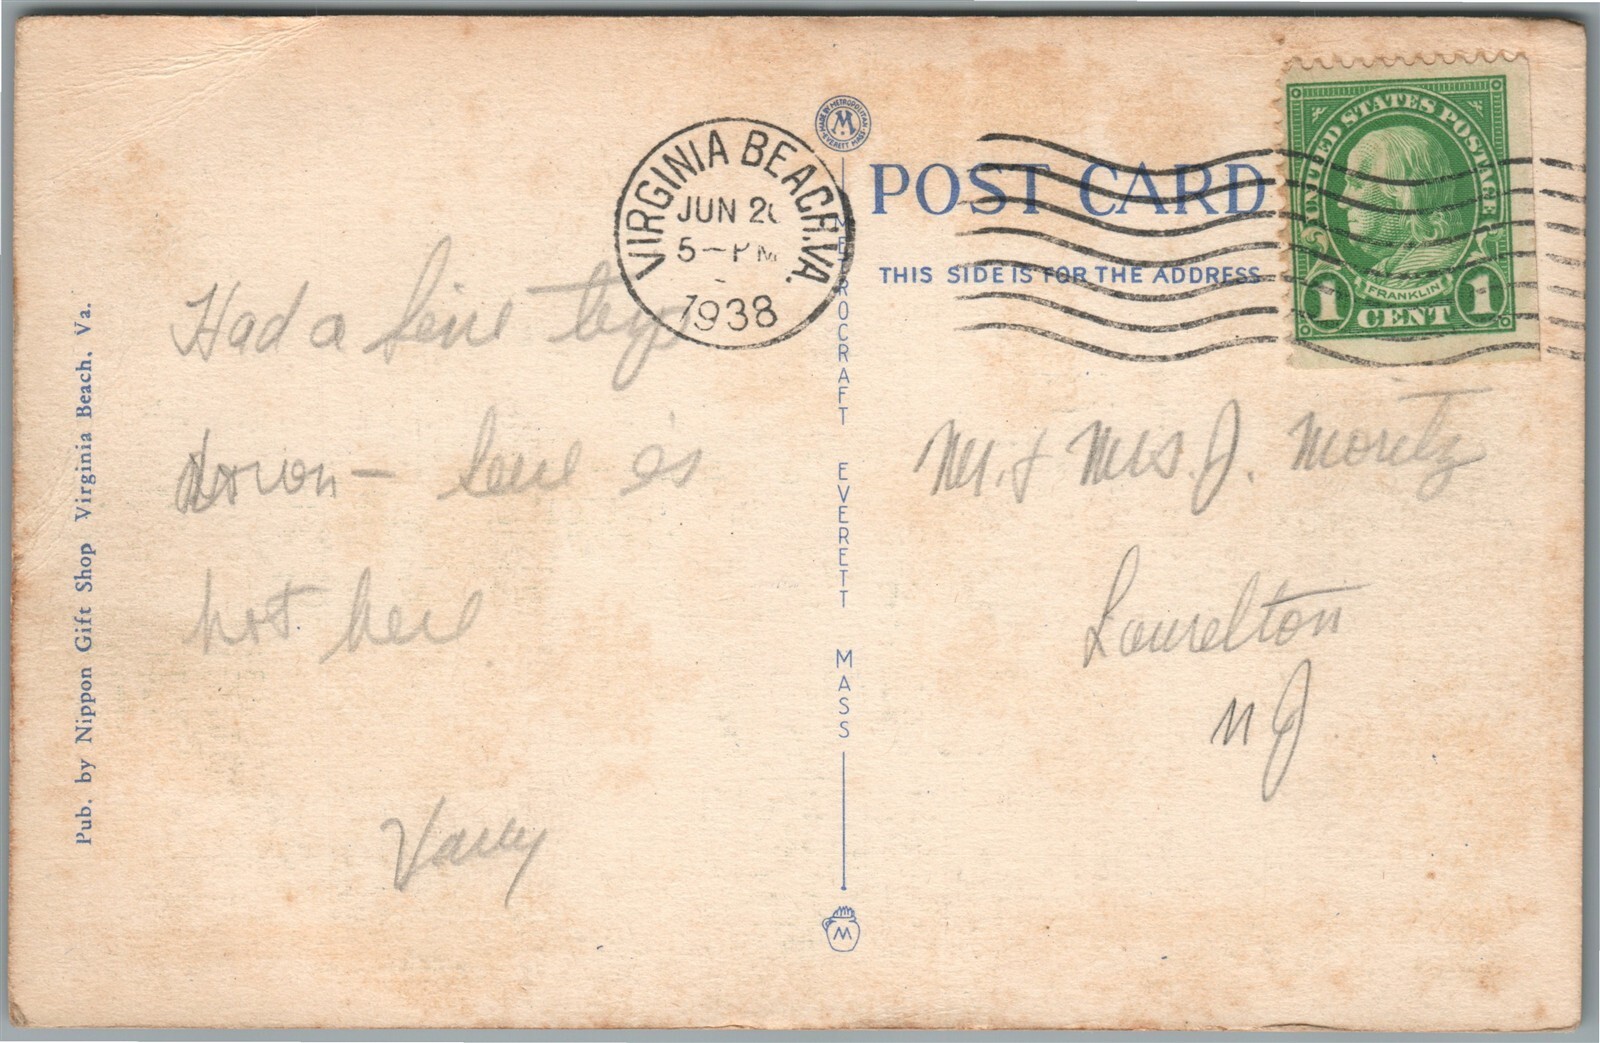 MADE BY METROPOLITAN
M
EVERETT MASS
VIRGINIA BEACH, VA.
JUN 20
5-PM
1938
POST CARD
THIS SIDE IS FOR THE ADDRESS
UNITED STATES POSTAGE
FRANKLIN
1 CENT 1
Had a fine trip
down - 
hot here
Mr. & Mrs. J. Moritz
Laurelton
N J
METROCRAFT EVERETT MASS
M
Pub. by Nippon Gift Shop Virginia Beach, Va.